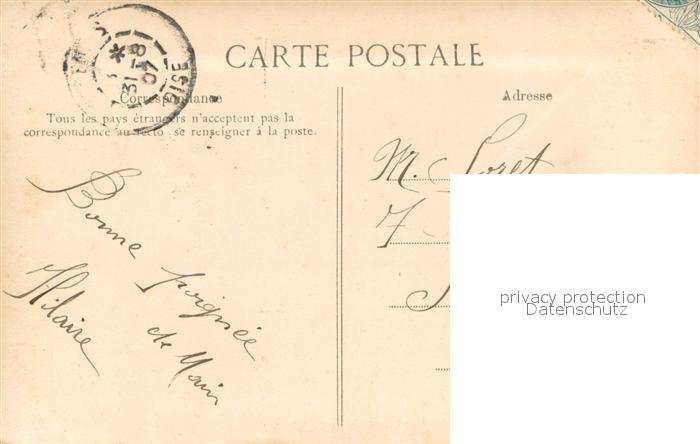 CARTE POSTALE
31 -8
07
OISE
Correspondance
Tous les pays étrangers n'acceptent pas la
correspondance au recto se renseigner à la poste.
Bonne poignée
de Main
Hilaire
Adresse
M. Loret
7
privacy protection
Datenschutz